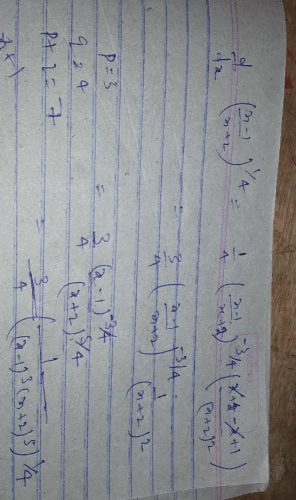 d/dx ((x-1)/(x+2))^1/4 = 1/4 ((x-1)/(x+2))^-3/4 ((x+2-x+1)/(x+2)^2)
= 3/4 ((x-1)/(x+2))^-3/4 · 1/(x+2)^2
p=3
q=4
p+q=7
= 3/4 (x-1)^-3/4 / (x+2)^5/4
= 3/4 (1/((x-1)^3(x+2)^5)^1/4